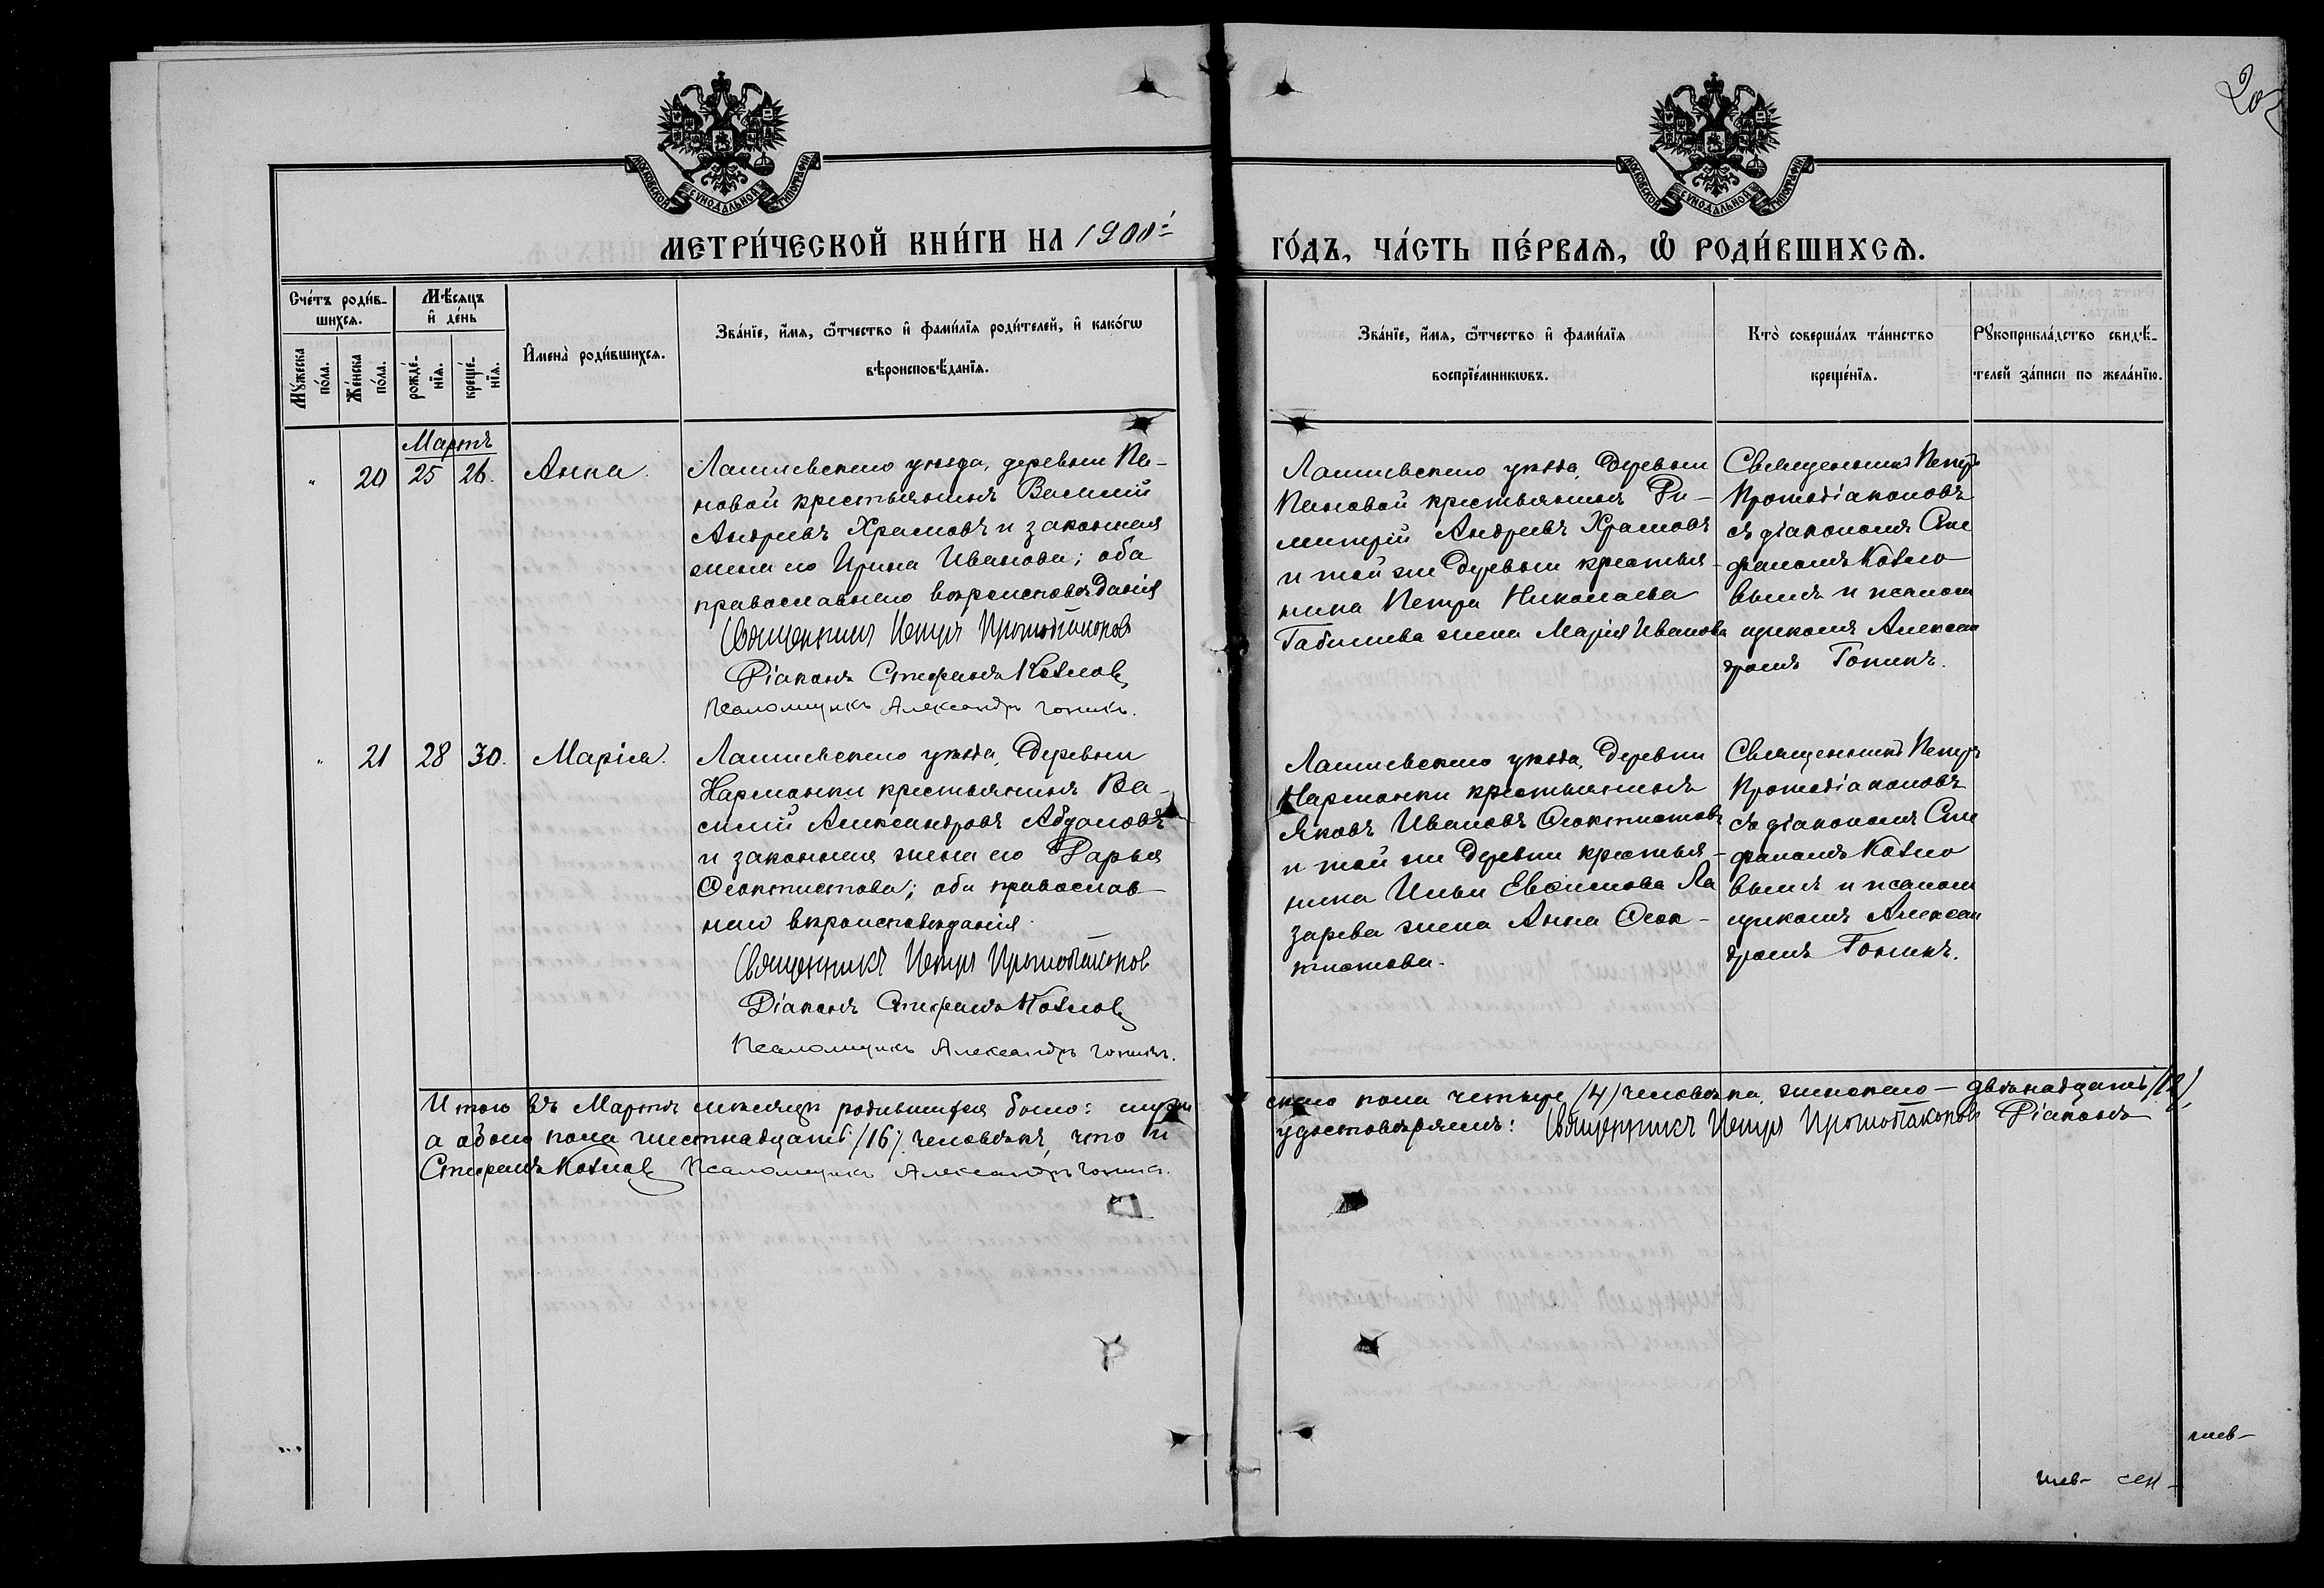 20
МОСКОВСКОЙ СѴНОДАЛЬНОЙ ТИПОГРАФІИ
МОСКОВСКОЙ СѴНОДАЛЬНОЙ ТИПОГРАФІИ
МЕТРИ́ЧЕСКОЙ КНИ́ГИ НА 1900й
ГО́ДЪ, ЧА́СТЬ ПЕ́РВАѦ, Ѽ РОДИ́ВШИХСѦ.
Сче́тъ роди́в-
шихсѧ.
Мꙋ́жеска
по́ла.
Же́нска
по́ла.
Мѣ́сѧцъ
и҆ де́нь
рожде́-
нїѧ.
креще́-
нїѧ.
И҆мена̀ роди́вшихсѧ.
Зва́нїе, и҆́мѧ, ѻ҆́тчество и҆ фами́лїѧ роди́телей, и҆ како́гѡ
вѣроисповѣ́данїѧ.
Зва́нїе, и҆́мѧ, ѻ҆́тчество и҆ фами́лїѧ
воспрїе́мникѡвъ.
Кто̀ соверша́лъ та́инство
креще́нїѧ.
Рꙋкоприкла́дство свидѣ́-
телей за́писи по жела́нїю.
Мартъ
" 20 25 26. Анна.
Лаишевскаго уѣзда, деревни Па-
новой крестьянинъ Василій
Андреевъ Храмовъ и законная
жена его Ирина Иванова; оба
православнаго вѣроисповѣданія
Священникъ Петръ Протодіаконов
Діаконъ Стефанъ Котлов
Псаломщикъ Александръ Гонинъ.
Лаишевскаго уѣзда, деревни
Пановой крестьянинъ Ди-
митрій Андреевъ Храмовъ
и той же деревни крестья-
нина Петра Николаева
Габишева жена Марія Иванова
Священникъ Петръ
Протодіаконовъ
съ діакономъ Сте
фаномъ Котло
вымъ и псалом
щикомъ Алексан
дромъ Гонинъ.
" 21 28 30. Марія.
Лаишевскаго уѣзда, деревни
Нармонки крестьянинъ Ва-
силій Александровъ Абдаловъ
и законная жена его Дарья
Ѳеоктистова; оба православ-
наго вѣроисповѣданія.
Священникъ Петръ Протодіаконов
Діаконъ Стефанъ Котлов
Псаломщикъ Александръ Гонинъ.
Лаишевскаго уѣзда, деревни
Нармонки крестьянинъ
Яковъ Ивановъ Ѳеоктистовъ
и той же деревни крестья-
нина Ильи Евѳимова Ла
зарева жена Анна Ѳеок-
тистова.
Священникъ Петръ
Протодіаконовъ
съ діакономъ Сте
фаномъ Котло
вымъ и псалом
щикомъ Алексан
дромъ Гонинъ.
Итого въ Мартѣ мѣсяцѣ родившихся было: муже
скаго пола четыре /4/ человѣка, женскаго - двѣнадцать /12/
а обоего пола шестнадцать /16/ человѣкъ, что и
удостовѣряемъ: Священникъ Петръ Протодіаконов Діаконъ
Стефанъ Котлов Псаломщикъ Александръ Гонинъ.